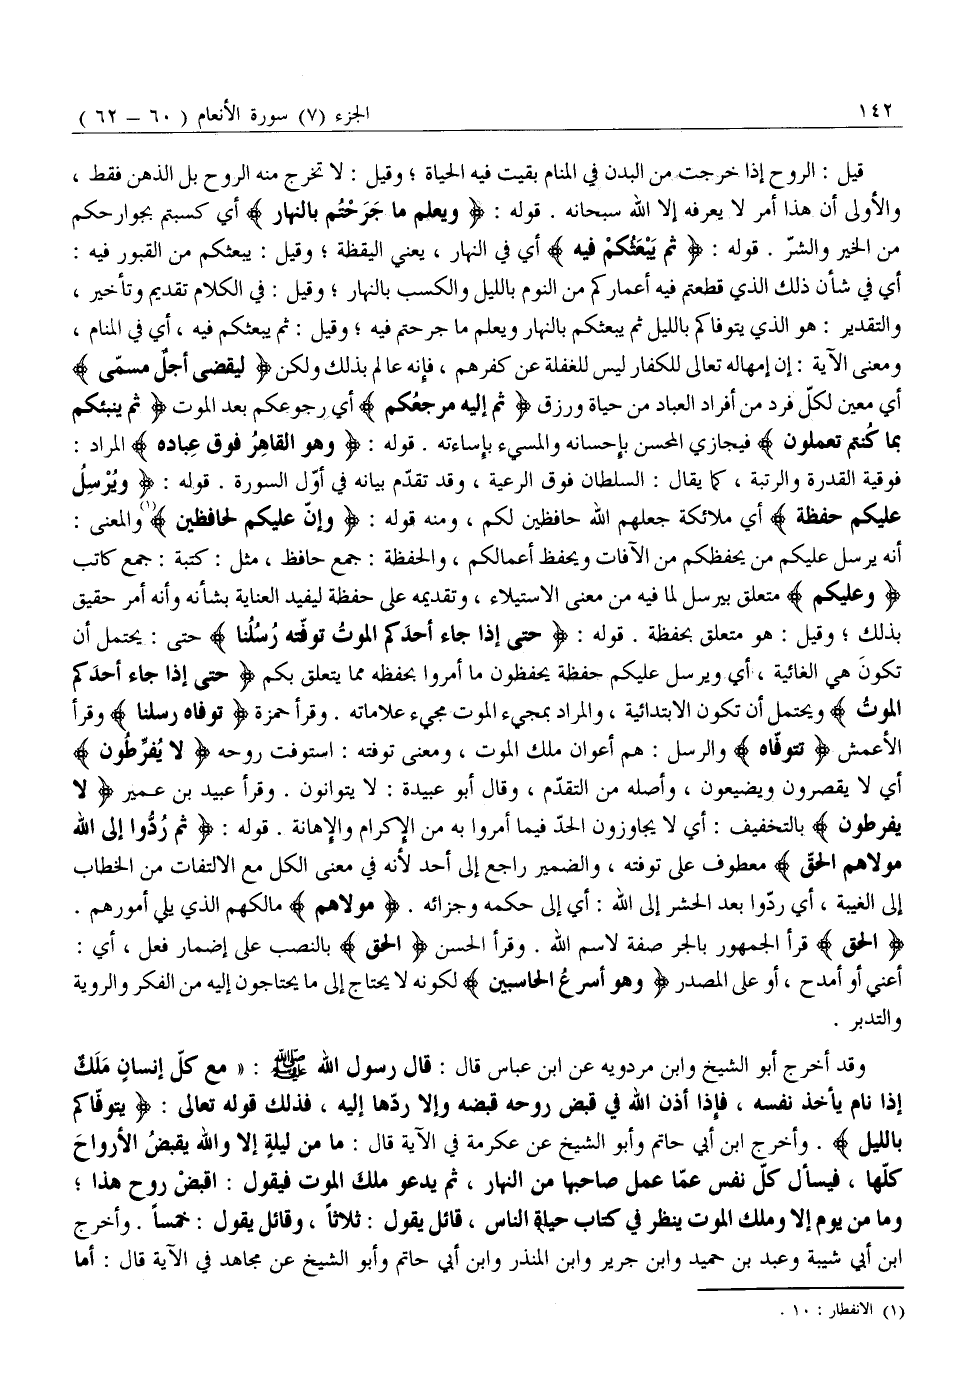 ١٤٢
الجزء (٧) سورة الأنعام ( ٦٠ – ٦٢ )
قيل : الروح إذا خرجت من البدن في المنام بقيت فيه الحياة ؛ وقيل : لا تخرج منه الروح بل الذهن فقط ،
والأولى أن هذا أمر لا يعرفه إلا الله سبحانه . قوله : ﴿ ويعلم ما جَرَحْتُم بالنهار ﴾ أي كسبتم بجوارحكم
من الخير والشرّ . قوله : ﴿ ثم يَبْعَثُكمْ فيه ﴾ أي في النهار ، يعني اليقظة ؛ وقيل : يبعثكم من القبور فيه :
أي في شأن ذلك الذي قطعتم فيه أعماركم من النوم بالليل والكسب بالنهار ؛ وقيل : في الكلام تقديم وتأخير ،
والتقدير : هو الذي يتوفاكم بالليل ثم يبعثكم بالنهار ويعلم ما جرحتم فيه ؛ وقيل : ثم يبعثكم فيه ، أي في المنام ،
ومعنى الآية : إن إمهاله تعالى للكفار ليس للغفلة عن كفرهم ، فإنه عالم بذلك ولكن ﴿ ليقضى أجلٌ مسمّى ﴾
أي معين لكلّ فرد من أفراد العباد من حياة ورزق ﴿ ثم إليه مرجعُكم ﴾ أي رجوعكم بعد الموت ﴿ ثم ينبئكم
بما كُنتم تعملون ﴾ فيجازي المحسن بإحسانه والمسيء بإساءته . قوله : ﴿ وهو القاهرُ فوق عِباده ﴾ المراد :
فوقية القدرة والرتبة ، كما يقال : السلطان فوق الرعية ، وقد تقدّم بيانه في أوّل السورة . قوله : ﴿ ويُرْسِلُ
عليكم حفظة ﴾ أي ملائكة جعلهم الله حافظين لكم ، ومنه قوله : ﴿ وإنّ عليكم لحافظين ﴾(١) والمعنى :
أنه يرسل عليكم من يحفظكم من الآفات ويحفظ أعمالكم ، والحفظة : جمع حافظ ، مثل : كتبة : جمع كاتب
﴿ وعليكم ﴾ متعلق بيرسل لما فيه من معنى الاستيلاء ، وتقديمه على حفظة ليفيد العناية بشأنه وأنه أمر حقيق
بذلك ؛ وقيل : هو متعلق بحفظة . قوله : ﴿ حتى إذا جاء أحدكم الموتُ توفّته رُسُلُنا ﴾ حتى : يحتمل أن
تكونَ هي الغائية ، أي ويرسل عليكم حفظة يحفظون ما أمروا بحفظه مما يتعلق بكم ﴿ حتى إذا جاء أحدَكم
الموتُ ﴾ ويحتمل أن تكون الابتدائية ، والمراد بمجيء الموت مجيء علاماته . وقرأ حمزة ﴿ توفاه رسلنا ﴾ وقرأ
الأعمش ﴿ تتوفّاه ﴾ والرسل : هم أعوان ملك الموت ، ومعنى توفته : استوفت روحه ﴿ لا يُفرِّطُون ﴾
أي لا يقصرون ويضيعون ، وأصله من التقدّم ، وقال أبو عبيدة : لا يتوانون . وقرأ عبيد بن عمير ﴿ لا
يفرطون ﴾ بالتخفيف : أي لا يجاوزون الحدّ فيما أمروا به من الإكرام والإهانة . قوله : ﴿ ثم رُدُّوا إلى الله
مولاهم الحقّ ﴾ معطوف على توفته ، والضمير راجع إلى أحد لأنه في معنى الكل مع الالتفات من الخطاب
إلى الغيبة ، أي ردّوا بعد الحشر إلى الله : أي إلى حكمه وجزائه . ﴿ مولاهم ﴾ مالكهم الذي يلي أمورهم .
﴿ الحق ﴾ قرأ الجمهور بالجر صفة لاسم الله . وقرأ الحسن ﴿ الحق ﴾ بالنصب على إضمار فعل ، أي :
أعني أو أمدح ، أو على المصدر ﴿ وهو أسرعُ الحاسبين ﴾ لكونه لا يحتاج إلى ما يحتاجون إليه من الفكر والروية
والتدبر .
وقد أخرج أبو الشيخ وابن مردويه عن ابن عباس قال : قال رسول الله ﷺ : « مع كلّ إنسانٍ مَلَكٌ
إذا نام يأخذ نفسه ، فإذا أذن الله في قبض روحه قبضه وإلا ردّها إليه ، فذلك قوله تعالى : ﴿ يتوفّاكم
بالليل ﴾ . وأخرج ابن أبي حاتم وأبو الشيخ عن عكرمة في الآية قال : ما من ليلةٍ إلا والله يقبضُ الأرواحَ
كلّها ، فيسأل كلّ نفس عمّا عمل صاحبها من النهار ، ثم يدعو ملكَ الموت فيقول : اقبضْ روح هذا ؛
وما من يوم إلا وملك الموت ينظر في كتاب حياة الناس ، قائل يقول : ثلاثاً ، وقائل يقول : خمساً . وأخرج
ابن أبي شيبة وعبد بن حميد وابن جرير وابن المنذر وابن أبي حاتم وأبو الشيخ عن مجاهد في الآية قال : أما
(١) الانفطار : ١٠ .